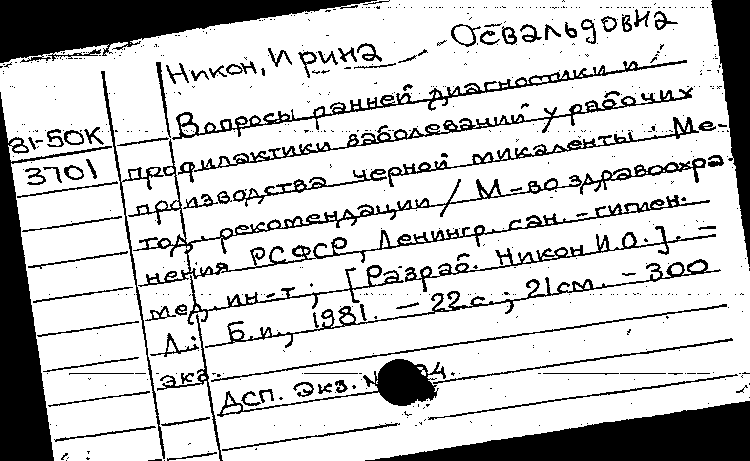 Никон, Ирина Освальдовна
81-50К
3701
Вопросы ранней диагностики и
профилактики заболеваний у рабочих
производства черной микаленты: Ме-
тод. рекомендации / М-во здравоохра-
нения РСФСР, Ленингр. сан.-гигиен.
мед. ин-т; [Разраб. Никон И.О.]. -
Л.: Б.и., 1981. - 22 с.; 21 см. - 300
экз.
ДСП. Экз. 24.